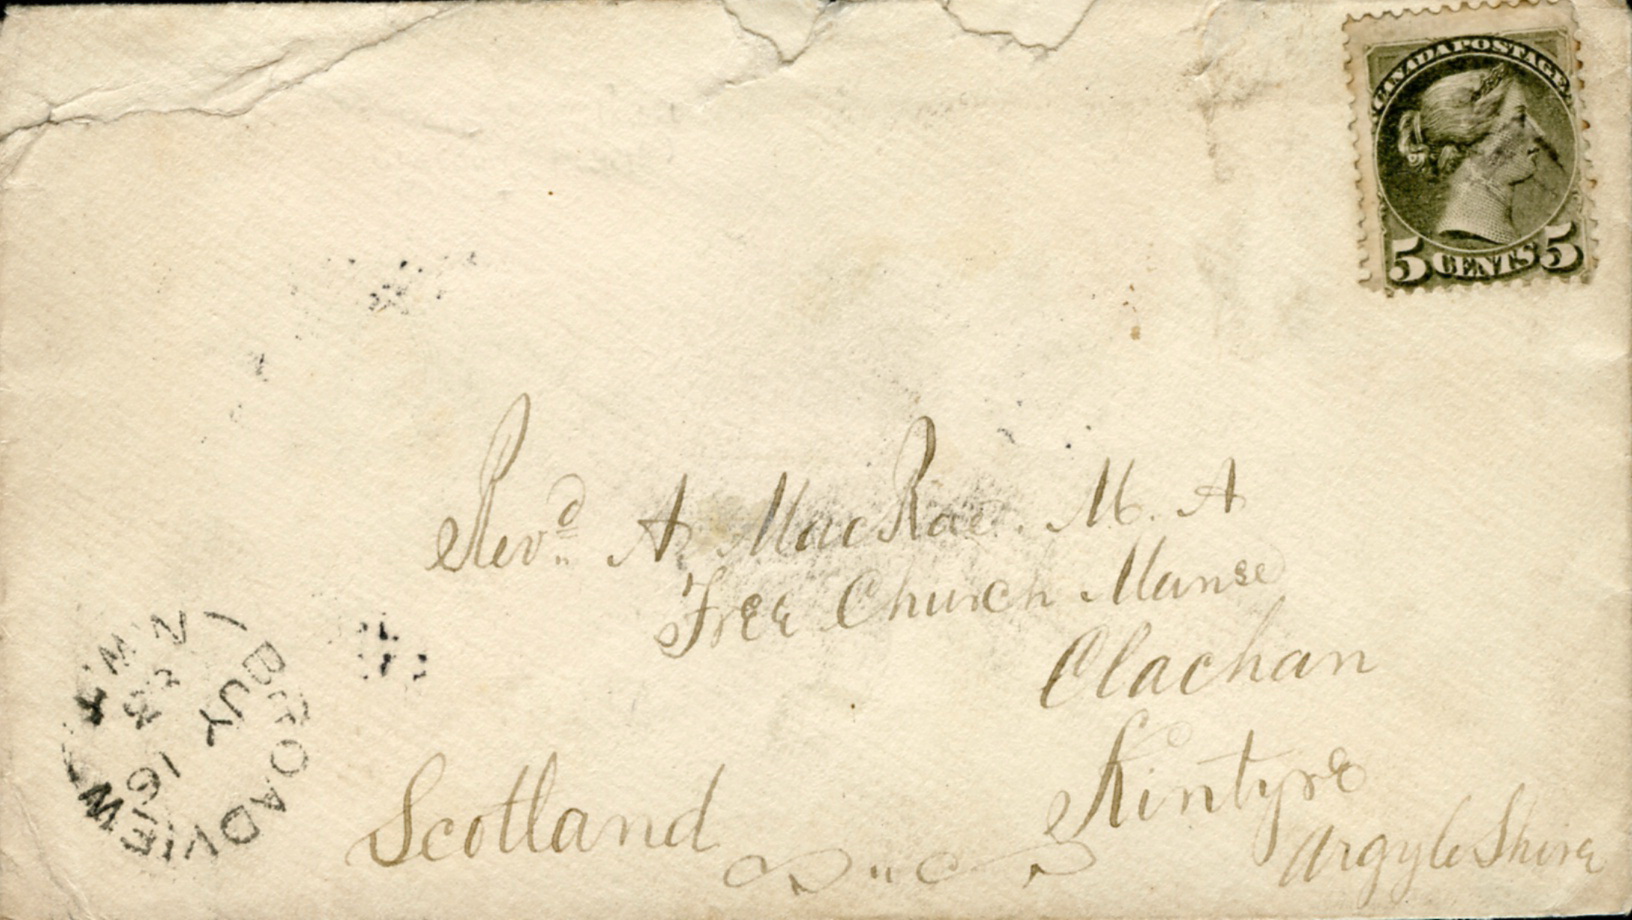 CANADA POSTAGE
5 CENTS 5
Revd A MacRae. M. A
Free Church Manse
Clachan
Kintyre
Argyle Shire
Scotland
BROADVIEW
JY 16